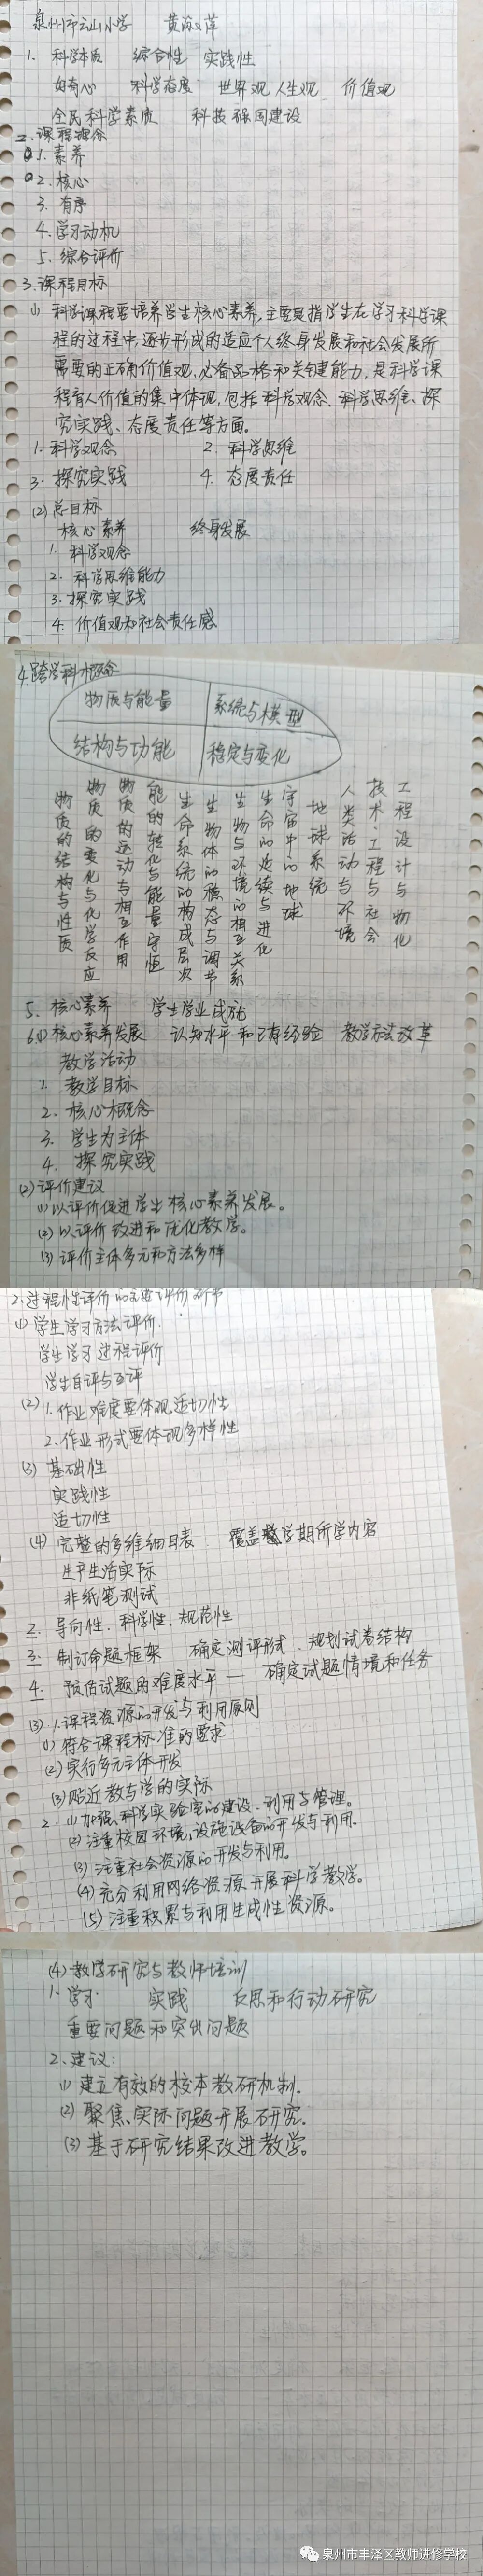 泉州市云山小学 黄
1. 科学本质 综合性 实践性
好奇心 科学态度 世界观 人生观 价值观
全民科学素质 科技强国建设
二.课程理念
1. 素养
2. 核心
3. 有序
4. 学习动机
5. 综合评价
3.课程目标
(1) 科学课程要培养学生核心素养,主要是指学生在学习科学课
程的过程中,逐步形成的适应个人终身发展和社会发展所
需要的正确价值观,必备品格和关键能力,是科学课
程育人价值的集中体现,包括科学观念、科学思维、探
究实践、态度责任等方面。
1. 科学观念 2. 科学思维
3. 探究实践 4. 态度责任
(2) 总目标
核心素养 终身发展
1. 科学观念
2. 科学思维能力
3. 探究实践
4. 价值观和社会责任感
4.跨学科概念
物质与能量 系统与模型
结构与功能 稳定与变化
物质的结构与性质
物质的变化与化学反应
物质的运动与相互作用
能的转化与能量守恒
生命系统的构成层次
生物体的稳态与调节
生物与环境的相互关系
生命的延续与进化
宇宙中的地球
地球系统
人类活动与环境
技术、工程与社会
工程设计与物化
5. 核心素养 学生学业成就
6.(1)核心素养发展 认知水平和已有经验 教学方法改革
教学活动
1. 教学目标
2. 核心概念
3. 学生为主体
4. 探究实践
(2)评价建议
(1)以评价促进学生核心素养发展。
(2)以评价改进和优化教学。
(3)评价主体多元和方法多样
2.过程性评价的主要评价环节
(1)学生学习方法评价.
学生学习过程评价
学生自评与互评
(2) 1.作业难度要体现适切性
2.作业形式要体现多样性
(3) 基础性
实践性
适切性
(4) 完整的多维细目表 覆盖整学期所学内容
生产生活实际
非纸笔测试
2. 导向性.科学性.规范性
3. 制订命题框架 确定测评形式.规划试卷结构
4. 预估试题的难度水平— 确定试题情境和任务
(3).1.课程资源的开发与利用原则
(1) 符合课程标准的要求
(2)实行多元主体开发
(3)贴近教与学的实际
2. (1)加强科学实验室的建设、利用与管理。
(2)注重校园环境、设施设备的开发与利用.
(3)注重社会资源的开发与利用。
(4)充分利用网络资源开展科学教学。
(5)注重积累与利用生成性资源。
(4)教学研究与教师培训
1. 学习 实践 反思和行动研究
重要问题和突出问题
2.建议:
(1)建立有效的校本教研机制.
(2)聚焦实际问题开展研究.
(3)基于研究结果改进教学。
泉州市丰泽区教师进修学校